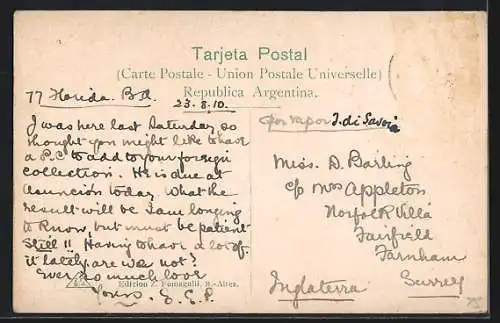 Tarjeta Postal
(Carte Postale - Union Postale Universelle)
Republica Argentina.
77 Florida. B.A.
23.8.10.
I was here last Saturday, so
thought you might like to have
a P.C to add to your foreign
collection. He is due at
Asuncion today. What the
result will be I am longing
to know, but must be patient
still!! Having to have a lot of
it lately, are we not?
Ever so much love
Yours. E.E.P.
por vapor I. di Savoia
Miss. D. Barling
c/o Mrs Appleton
Norfolk Villa
Fairfield
Farnham
Surrey
Inglaterra
Edicion Z. Fumagalli, B.-Aires.